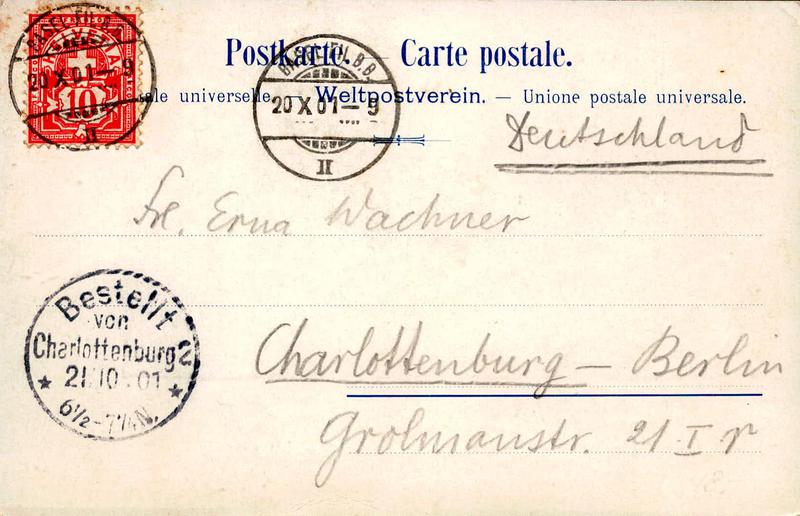 Postkarte. Carte postale.
ale universelle. — Weltpostverein. — Unione postale universale.
10
20 X 01 — 9
II
BASEL FIL. B.B.
20 X 01 — 9
II
Deutschland
Frl. Erna Wachner
Bestellt
von
Charlottenburg 2
21.10.01
6½-7¼N.
Charlottenburg — Berlin
Grolmanstr. 21 I r